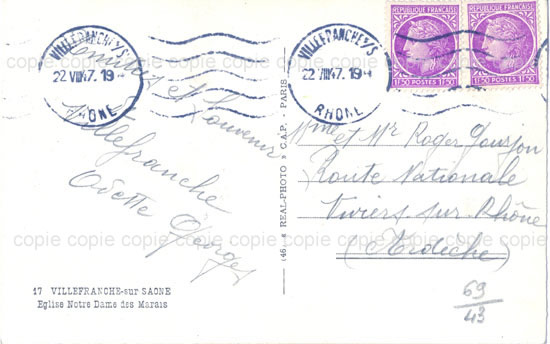 VILLEFRANCHE S/S
22 VIII 47. 19
RHONE
VILLEFRANCHE S/S
22 VIII 47. 19
RHONE
REPUBLIQUE FRANÇAISE
1F50 POSTES 1F50
REPUBLIQUE FRANÇAISE
1F50 POSTES 1F50
et Souvenir
Villefranche
Odette
(46) « REAL-PHOTO » C.A.P. - PARIS
Mme et Mr Roger Goujon
Route Nationale
Viviers sur Rhône
(Ardèche)
69
43
17 VILLEFRANCHE-sur SAONE
Eglise Notre Dame des Marais
copie copie copie copie copie copie copie copie copie
copie copie copie copie copie copie copie copie copie
copie copie copie copie copie copie copie copie copie